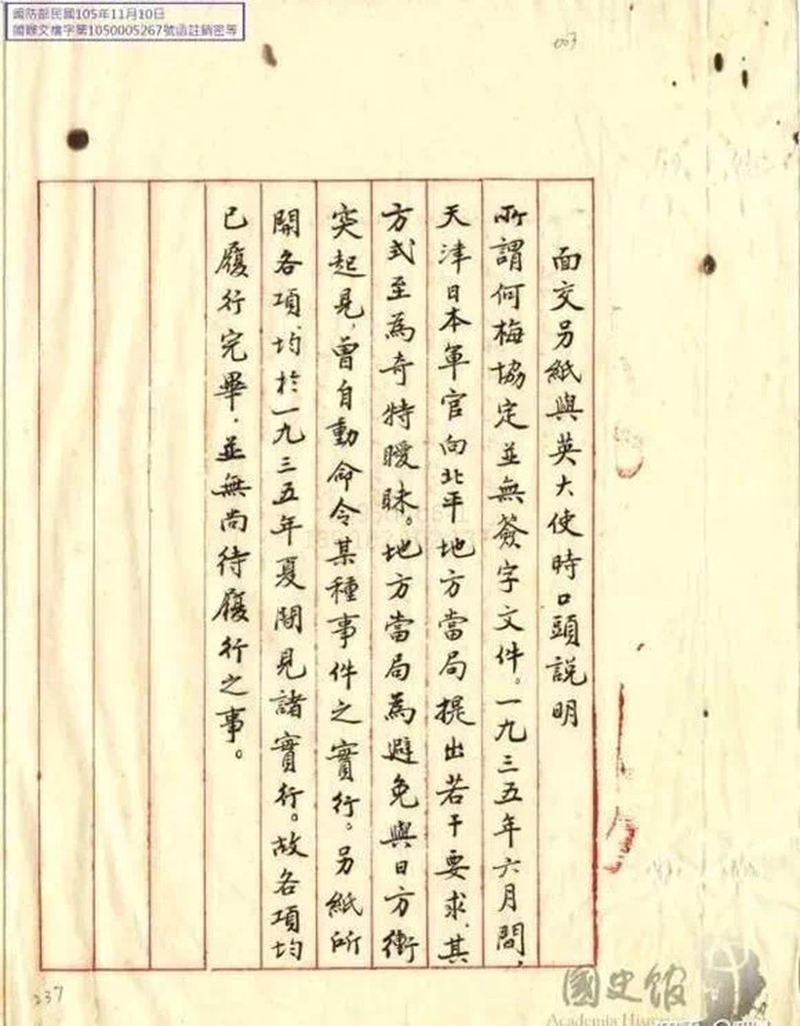 國防部民國105年11月10日
國聯文檔字第1050005267號函註銷密等
003
面交另紙與英大使時口頭説明
所謂何梅協定並無簽字文件。一九三五年六月間，
天津日本軍官向北平地方當局提出若干要求，其
方式至為奇特曖昧。地方當局為避免與日方衝
突起見，曾自動命令某種事件之實行。另紙所
開各項，均於一九三五年夏間見諸實行。故各項均
已履行完畢，並無尚待履行之事。
237
國史館